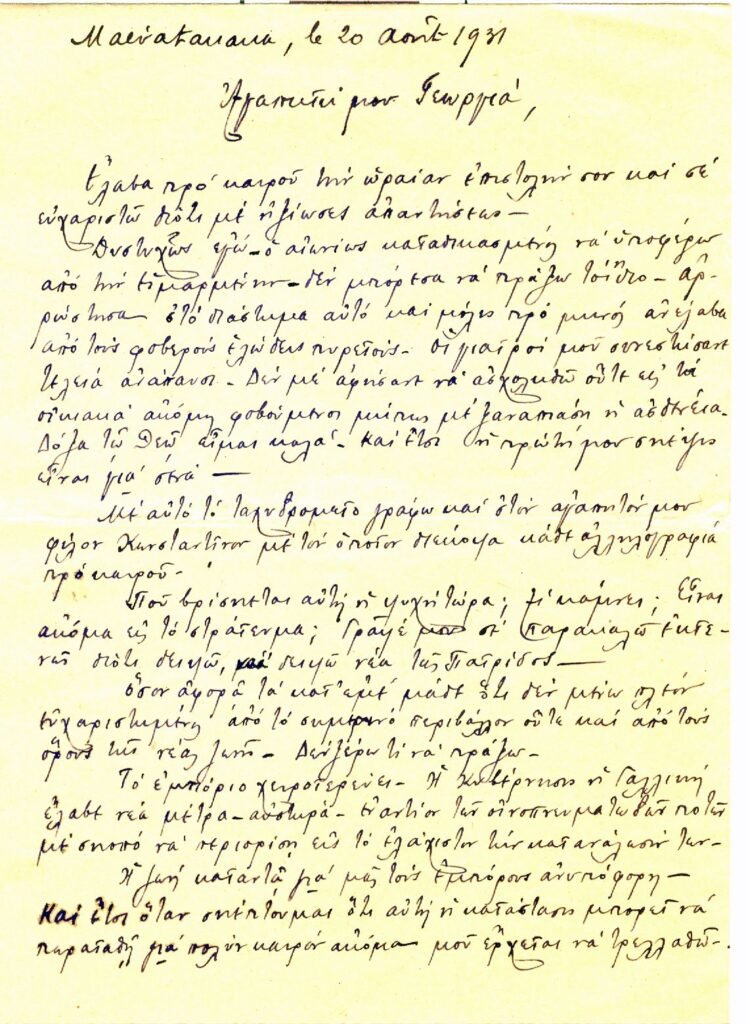 Maevatanana, le 20 Août 1931
Ἀγαπητέ μου Γεωργιά,
Ἔλαβα πρό καιροῦ τήν ὡραίαν ἐπιστολήν σου καί σέ
εὐχαριστῶ διότι μέ ἠξίωσες ἀπαντήσεως —
Δυστυχῶς ἐγώ — ὁ αἰωνίως καταδικασμένος νά ὑποφέρω
ἀπό τήν εἱμαρμένην — δέν μπόρεσα νά πράξω τό ἴδιο — ἀρ-
ρώστησα στό διάστημα αὐτό καί μόλις πρό μικροῦ ἀνέλαβα
ἀπό τούς φοβερούς ἑλώδεις πυρετούς. Οἱ γιατροί μοῦ συνεστήσανε
τέλεια ἀνάπαυσι. Δέν μέ ἀφήσανε νά ἀσχοληθῶ οὔτε εἰς τά
οἰκιακά ἀκόμη φοβούμενοι μήπως μέ ξαναπιάση ἡ ἀσθένεια.
Δόξα τῷ Θεῷ εἶμαι καλά. Καί ἔτσι ἡ πρώτη μου σκέψις
εἶναι γιά σένα —
Μέ αὐτό τό ταχυδρομεῖο γράφω καί στόν ἀγαπητόν μου
φίλον Κωνσταντῖνον μέ τόν ὁποῖον διέκοψα κάθε ἀλληλογραφία
πρό καιροῦ.
Ποῦ βρίσκεται αὐτή ἡ ψυχή τώρα; Τί κάμνει; Εἶναι
ἀκόμα εἰς τό στράτευμα; Γράψε μου σέ παρακαλῶ ἐκτε-
νῶς διότι διψῶ, διψῶ νέα τῆς Πατρίδος —
Ὅσον ἀφορᾶ τά κατ' ἐμέ μάθε ὅτι δέν μένω πλέον
εὐχαριστημένος ἀπό τό σημερινό περιβάλλον οὔτε καί ἀπό τούς
ὅρους τῆς νέας ζωῆς. Δέν ξέρω τί νά πράξω.
Τό ἐμπόριο χειροτερεύει. Ἡ Κυβέρνησις ἡ Γαλλική
ἔλαβε νέα μέτρα — αὐστηρά — ἐναντίον τῶν οἰνοπνευματωδῶν ποτῶν
μέ σκοπό νά περιορίση εἰς τό ἐλάχιστον τήν κατανάλωσίν των —
Ἡ ζωή καταντᾶ γιά μᾶς τούς ἐμπόρους ἀνυπόφορη —
Καί ἔτσι ὅταν σκέπτουμαι ὅτι αὐτή ἡ κατάστασις μπορεῖ νά
παραταθῆ γιά πολύν καιρόν ἀκόμα μοῦ ἔρχεται νά τρελλαθῶ.